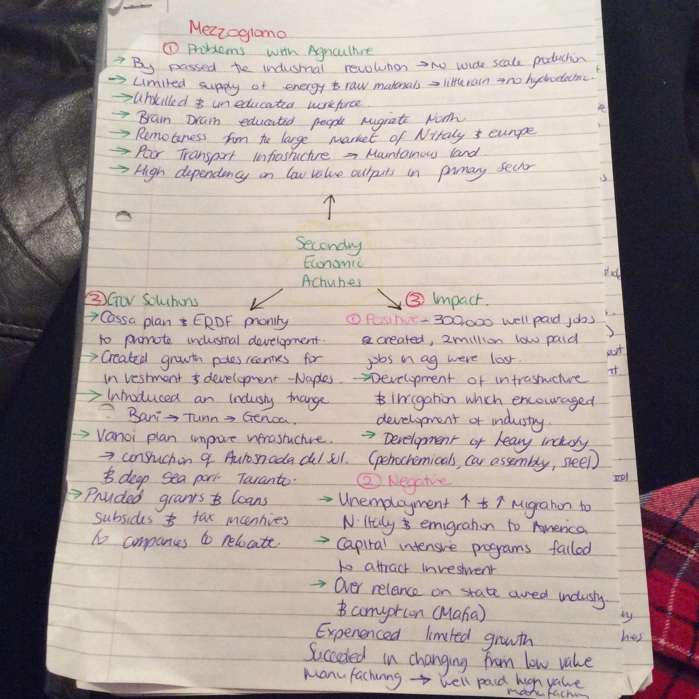 Mezzogiorno
① Problems with Agriculture
→ By passed the industrial revolution → No wide scale production
→ Limited supply of energy & raw materials → little rain → no hydroelectric.
→ Unskilled & uneducated workforce
→ Brain Drain educated people Migrate North
→ Remoteness from the large market of N·Italy & europe
→ Poor Transport Infrastructure → Mountainous land.
→ High dependency on low value outputs in primary sector
Secondry
Economic
Activities
③ Gov Solutions
→ Cassa plan & ERDF priority
to promote industrial development.
→ Created growth poles/centres for
investment & development - Naples.
→ Introduced an Industry triangle
Bari → Turin → Genoa.
→ Vanoi plan improve infrastructure.
→ construction of Autostrada del sol.
& deep sea port Taranto.
→ Provided grants & loans
subsides & tax incentives
to companies to relocate.
③ Impact.
① Positive - 300,000 well paid jobs
created, 2million low paid
jobs in ag were lost.
→ Development of infrastructure
& Irrigation which encouraged
development of industry.
→ Development of heavy industry
(petrochemicals, car assembly, steel)
② Negative
→ Unemployment ↑ & ↑ Migration to
N·Italy & emigration to America
→ Capital intensive programs failed
to attract investment
→ Over reliance on state owned industry
& corruption (Mafia)
Experienced limited growth
Succeeded in changing from low value
Manufacturing → well paid high value
manufacturing